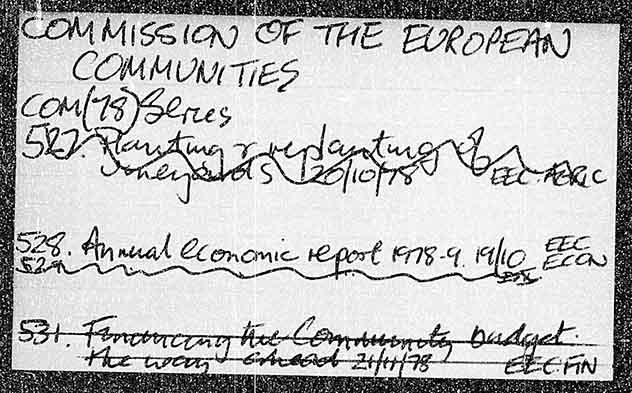 COMMISSION OF THE EUROPEAN
COMMUNITIES
COM(78) Series
527. Planting & replanting of
vineyards 20/10/78 EEC AGRIC
528. Annual economic report 1978-9. 19/10 EEC
529 ECON
531. Financing the Community budget.
the way ahead 21/11/78 EEC FIN